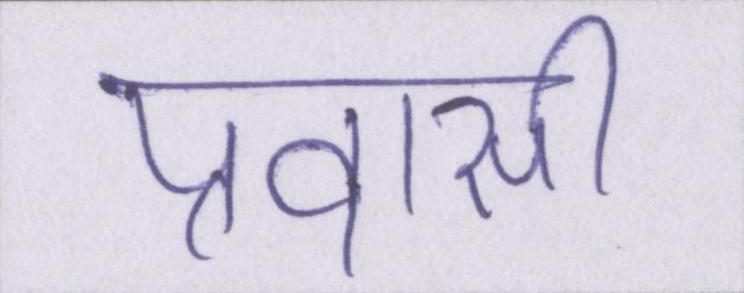 प्रवासी